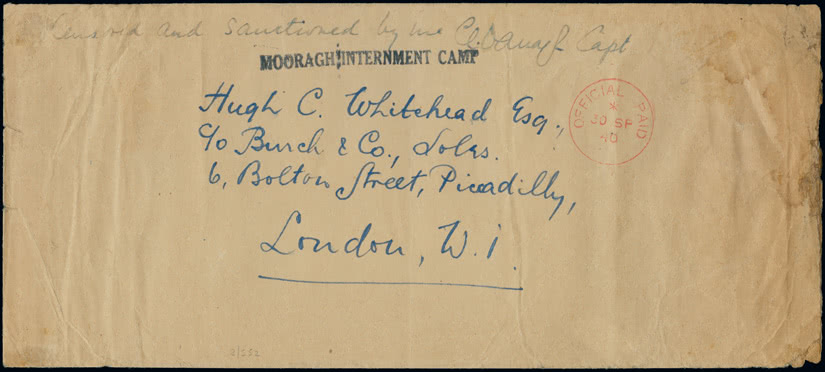 Censored and sanctioned by me Capt
MOORAGH INTERNMENT CAMP
Hugh C. Whitehead Esq.,
c/o Burch & Co., Solrs.
6, Bolton Street, Picadilly,
London, W.1.
OFFICIAL PAID
30 SP
40
2/552